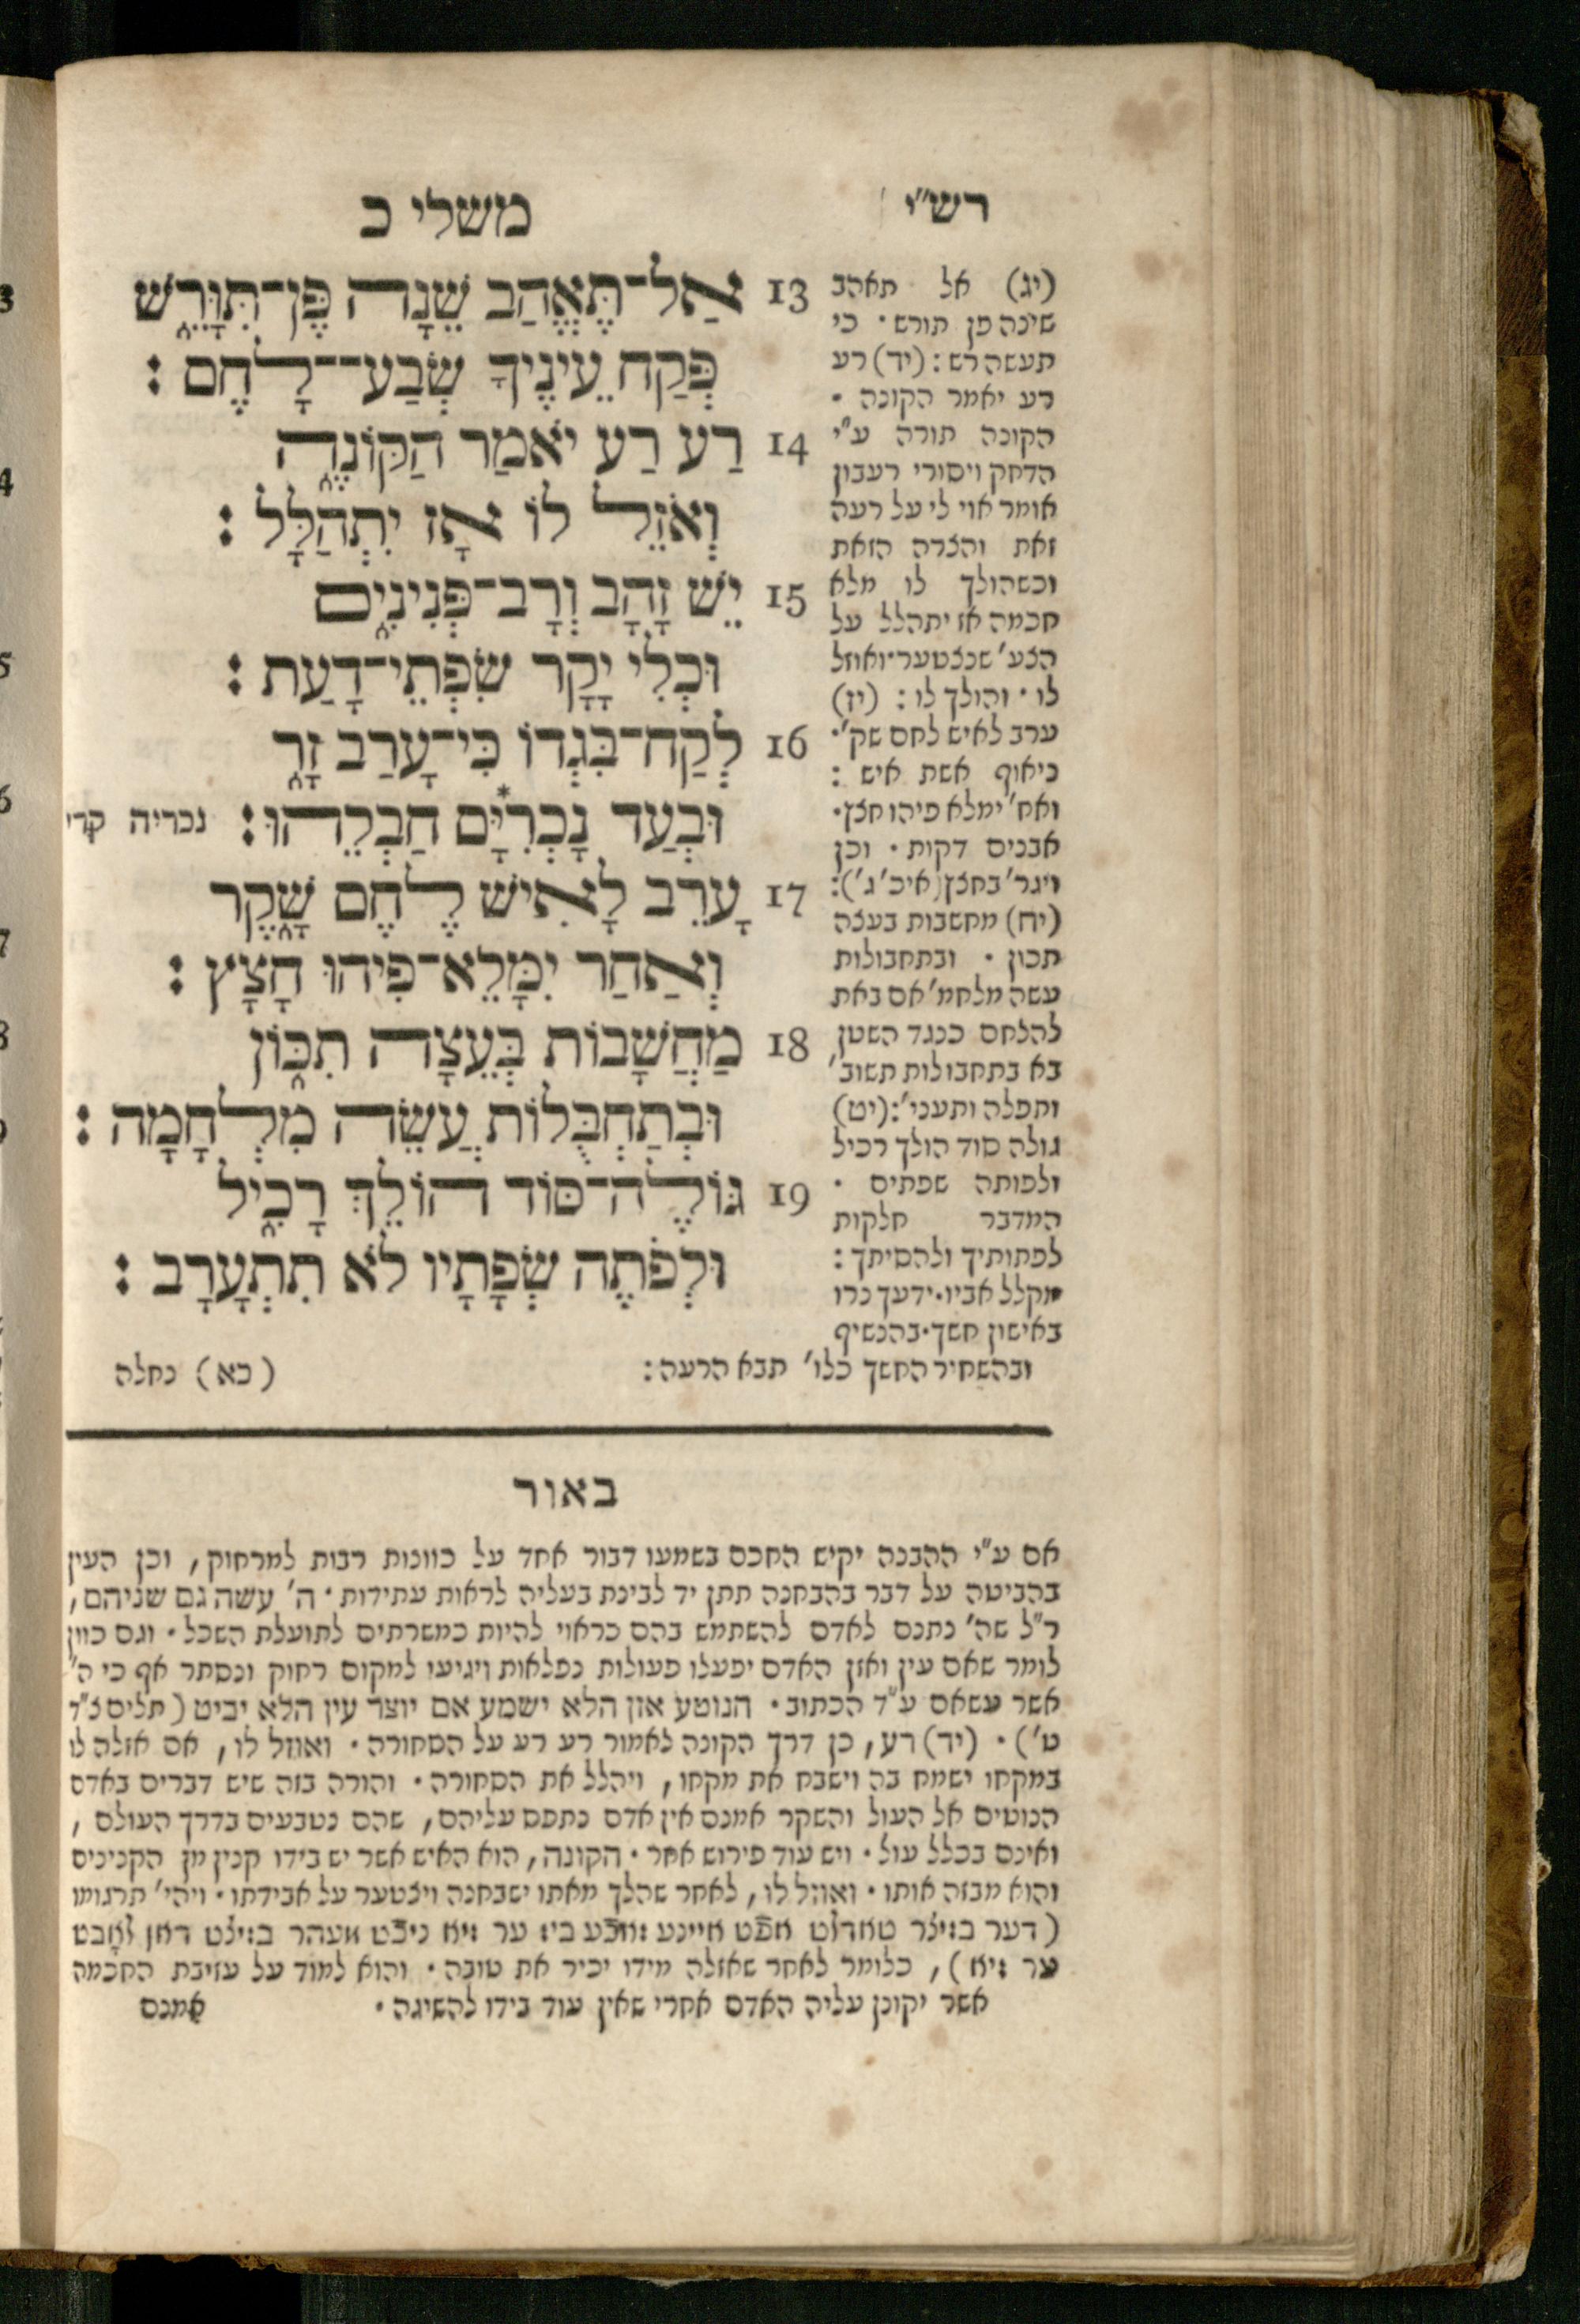 רש״י
משלי כ
13 אַל־תֶּאֱהַב שֵׁנָה פֶּן־תִּוָּרֵשׁ
פְּקַח עֵינֶיךָ שְׂבַע־לָחֶם :
14 רַע רַע יֹאמַר הַקּוֹנֶה
וְאֹזֵל לוֹ אָז יִתְהַלָּל :
15 יֵשׁ זָהָב וְרָב־פְּנִינִים
וּכְלִי יְקָר שִׂפְתֵי־דָעַת :
16 לְקַח־בִּגְדוֹ כִּי־עָרַב זָר
וּבְעַד נָכְרִיָּם חַבְלֵהוּ : נכריה קרי
17 עָרֵב לָאִישׁ לֶחֶם שָׁקֶר
וְאַחַר יִמָּלֵא־פִיהוּ חָצָץ :
18 מַחֲשָׁבוֹת בְּעֵצָה תִכּוֹן
וּבְתַחְבֻּלוֹת עֲשֵׂה מִלְחָמָה :
19 גּוֹלֶה־סּוֹד הוֹלֵךְ רָכִיל
וּלְפֹתֶה שְׂפָתָיו לֹא תִתְעָרָב :
(יג) אל תאהב
שינה פן תורש · כי
תעשה רש : (יד) רע
רע יאמר הקונה ·
הקונה תורה ע״י
הדחק ויסורי רעבון
אומר אוי לי על רעה
זאת והצרה הזאת
וכשהולך לו מלא
חכמה אז יתהלל על
הצע׳ שנצטער · ואוזל
לו · והולך לו : (יז)
ערב לאיש לחם שק׳ ·
ניאוף אשת איש :
ואח׳ ימלא פיהו חצץ ·
אבנים דקות · וכן
ויגר׳ בחצץ (איכ׳ ג׳) :
(יח) מחשבות בעצה
תכון · ובתחבולות
עשה מלחמ׳ אם באת
להלחם כנגד השטן
בא בתחבולות תשוב׳
ותפלה ותעני׳ : (יט)
גולה סוד הולך רכיל
ולפותה שפתים ·
המדבר חלקות
לפתותיך ולהסיתך :
מקלל אביו · ידעך נרו
באישון חשך · בהנשיף
ובהשחיר החשך כלו׳ תבא הרעה : (כא) נחלה
באור
אם ע״י ההבנה יקיש החכם בשמעו דבור אחד על כוונות רבות למרחוק, וכן העין
בהביטה על דבר בהבחנה תתן יד לבינת בעליה לראות עתידות · ה׳ עשה גם שניהם,
ר״ל שה׳ נתנם לאדם להשתמש בהם כראוי להיות כמשרתים לתועלת השכל · וגם כוון
לומר שאם עין ואזן האדם יפעלו פעולות נפלאות ויגיעו למקום רחוק ונסתר אף כי ה׳
אשר עשאם ע״ד הכתוב · הנוטע אזן הלא ישמע אם יוצר עין הלא יביט (תלים צ״ד
ט׳) · (יד) רע, כן דרך הקונה לאמור רע רע על הסחורה · ואוזל לו, אם אזלה לו
במקחו ישמח בה וישבח את מקחו, ויהלל את הסחורה · והורה בזה שיש דברים באדם
הנוטים אל העול והשקר אמנם אין אדם נתפס עליהם, שהם נטבעים בדרך העולם,
ואינם בכלל עול · ויש עוד פירוש אחר · הקונה, הוא האיש אשר יש בידו קנין מן הקנינים
והוא מבזה אותו · ואוזל לו, לאחר שהלך מאתו ישבחנה ויצטער על אבידתו · ויהי׳ תרגומו
(דער בזיצר טאדלט אפֿט איינע זאכֿע ביז ער זיא ניכֿט מעהר בזיצט דאן לאָבט
ער זיא), כלומר לאחר שאזלה מידו יכיר את טובה · והוא למוד על עזיבת החכמה
אשר יקונן עליה האדם אחרי שאין עוד בידו להשיגה · אמנם